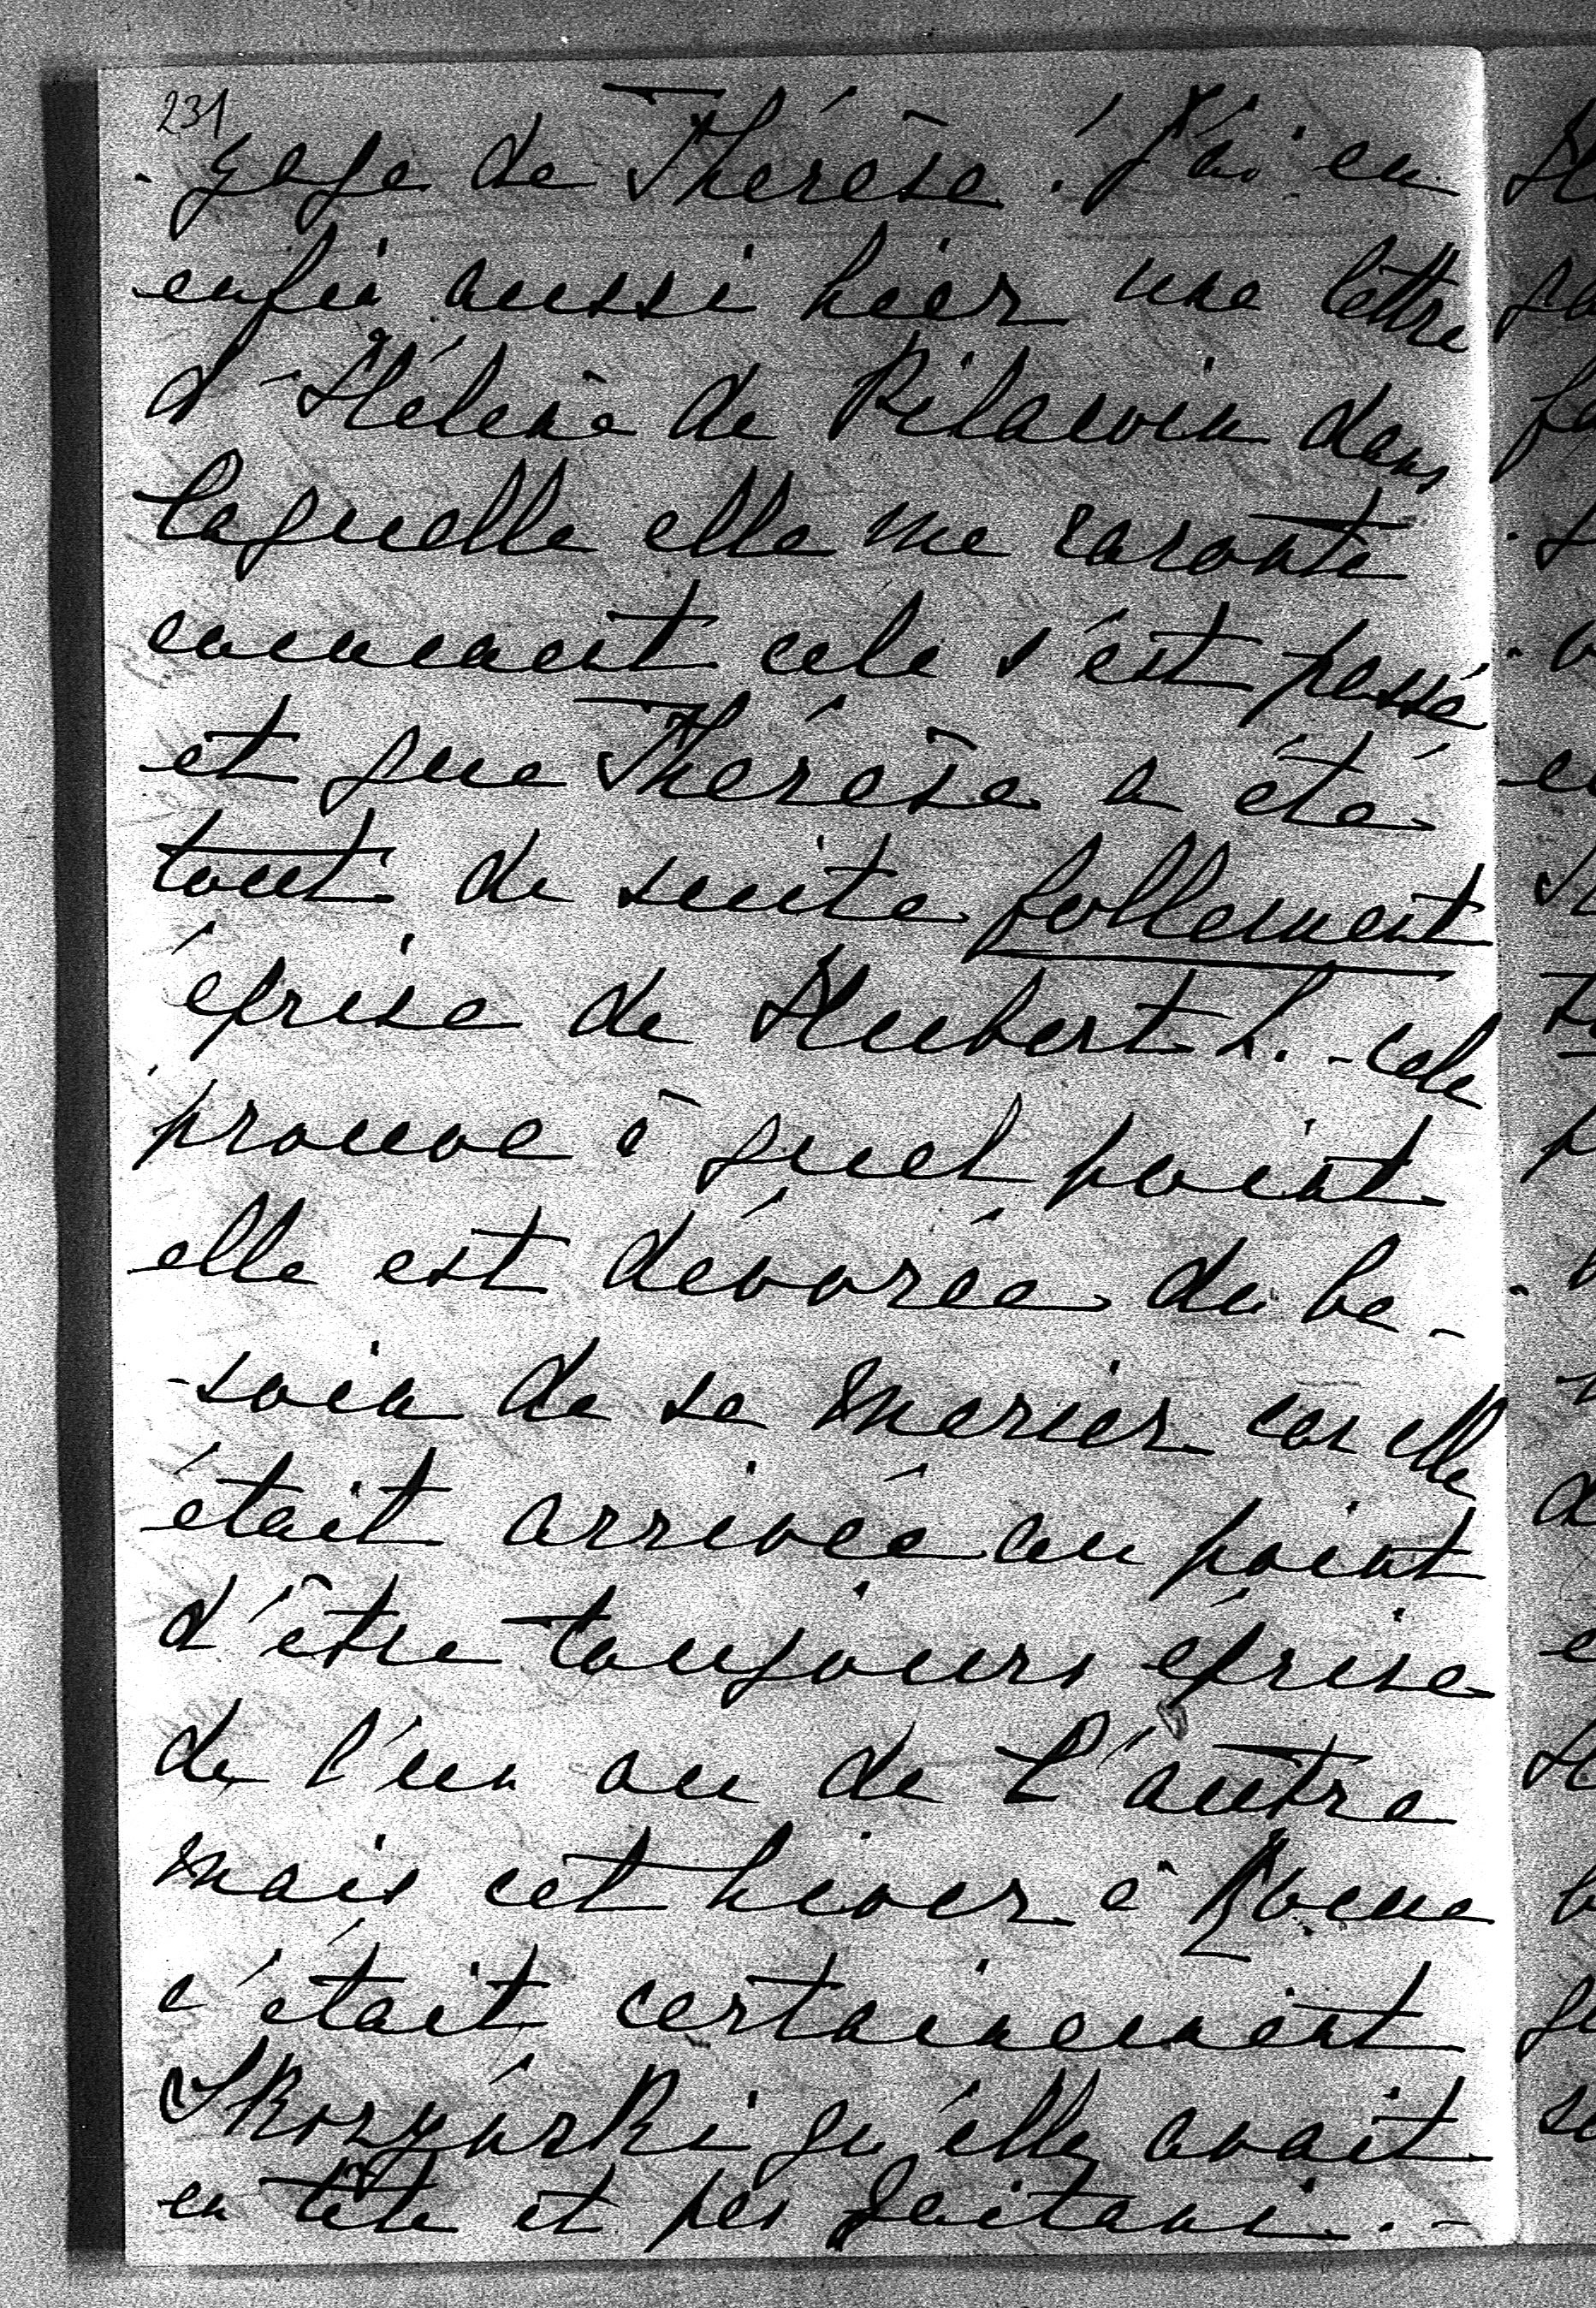 231
- gage de Thérèse! J'ai eu
enfin aussi hier une lettre
d'Hélène de Pilawin dans
laquelle elle me raconte
comment cela s'est passé
et que Thérèse a été
tout de suite follement
éprise de Hubert L. - cela
prouve à quel point
elle est dévorée du be-
-soin de se marier car elle
était arrivée au point
d'être toujours éprise
de l'un ou de l'autre
mais cet hiver à Rome
c'était certainement
Skrzyński qu'elle avait
en tête et pas Gaitani. -